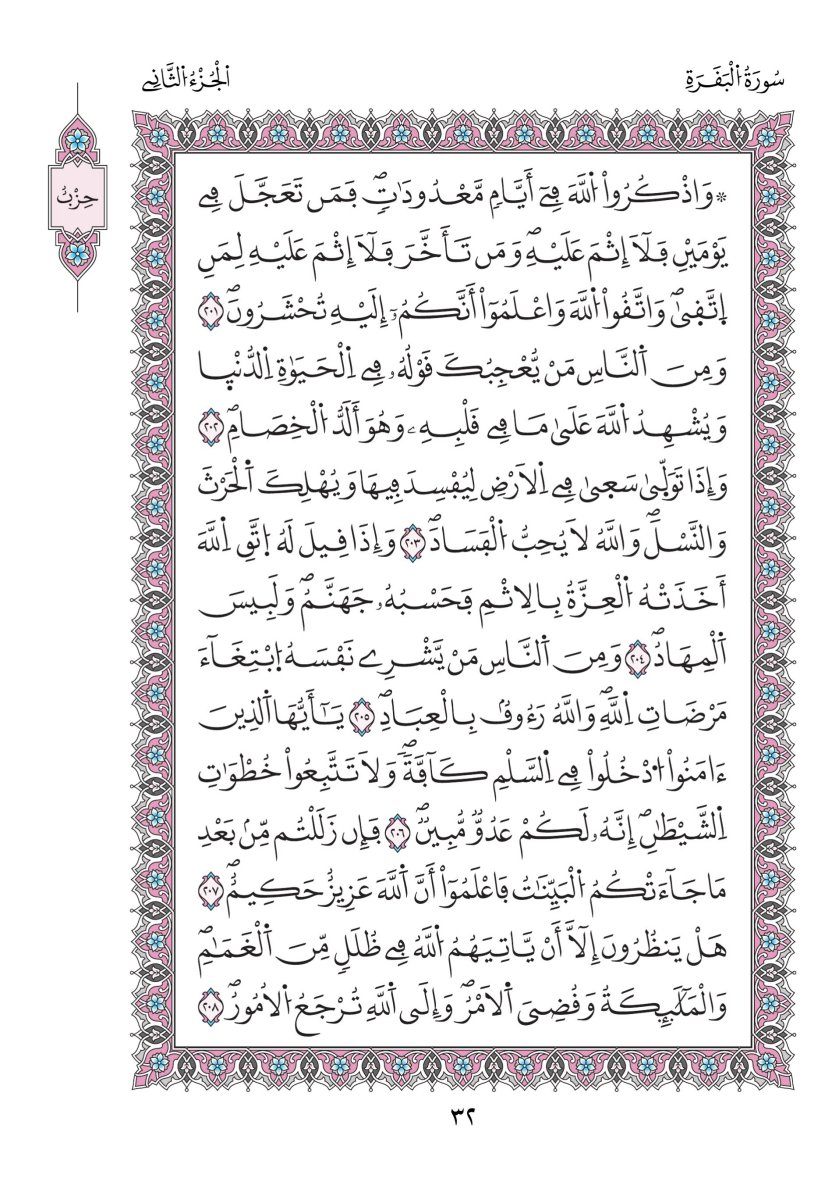 سُورَةُ اُ۬لْبَقَرَةِ
اُ۬لْجُزْءُ اُ۬لثَّانِے
حِزْبٌ
* وَاذْكُرُواْ اُ۬للَّهَ فِےٓ أَيَّامٖ مَّعْدُودَٰتٖۖ فَمَن تَعَجَّلَ فِے
يَوْمَيْنِ فَلَآ إِثْمَ عَلَيْهِۖ وَمَن تَأَخَّرَ فَلَآ إِثْمَ عَلَيْهِ لِمَنِ
اِ۪تَّق۪ىٰۖ وَاتَّقُواْ اُ۬للَّهَ وَاعْلَمُوٓاْ أَنَّكُمُۥٓ إِلَيْهِ تُحْشَرُونَۖ ٢٠١
وَمِنَ اَ۬لنَّاسِ مَنْ يُّعْجِبُكَ قَوْلُهُۥ فِے اِ۬لْحَيَوٰةِ اِ۬لدُّنْي۪ا
وَيُشْهِدُ اُ۬للَّهَ عَلَىٰ مَا فِے قَلْبِهِۦ وَهُوَ أَلَدُّ اُ۬لْخِصَامِۖ ٢٠٢
وَإِذَا تَوَلّ۪ىٰ سَع۪ىٰ فِے اِ۬لَارْضِ لِيُفْسِدَ فِيهَا وَيُهْلِكَ اَ۬لْحَرْثَ
وَالنَّسْلَۖ وَاللَّهُ لَا يُحِبُّ اُ۬لْفَسَادَۖ ٢٠٣ وَإِذَا قِيلَ لَهُ اُ۪تَّقِ اِ۬للَّهَ
أَخَذَتْهُ اُ۬لْعِزَّةُ بِالِاثْمِ فَحَسْبُهُۥ جَهَنَّمُۖ وَلَبِيسَ
اَ۬لْمِهَادُۖ ٢٠٤ وَمِنَ اَ۬لنَّاسِ مَنْ يَّشْرِے نَفْسَهُ اُ۪بْتِغَآءَ
مَرْضَاتِ اِ۬للَّهِۖ وَاللَّهُ رَءُوفُۢ بِالْعِبَادِۖ ٢٠٥ يَٰٓأَيُّهَا اَ۬لذِينَ
ءَامَنُواْ اُ۟دْخُلُواْ فِے اِ۬لسَّلْمِ كَآفَّةٗۖ وَلَا تَتَّبِعُواْ خُطْوَٰتِ
اِ۬لشَّيْطَٰنِۖ إِنَّهُۥ لَكُمْ عَدُوّٞ مُّبِينٞۖ ٢٠٦ فَإِن زَلَلْتُم مِّنۢ بَعْدِ
مَا جَآءَتْكُمُ اُ۬لْبَيِّنَٰتُ فَاعْلَمُوٓاْ أَنَّ اَ۬للَّهَ عَزِيزٌ حَكِيمٌۖ ٢٠٧
هَلْ يَنظُرُونَ إِلَّآ أَنْ يَّاتِيَهُمُ اُ۬للَّهُ فِے ظُلَلٖ مِّنَ اَ۬لْغَمَٰمِ
وَالْمَلَٰٓئِكَةُ وَقُضِيَ اَ۬لَامْرُۖ وَإِلَى اَ۬للَّهِ تُرْجَعُ اُ۬لُامُورُۖ ٢٠٨
٣٢